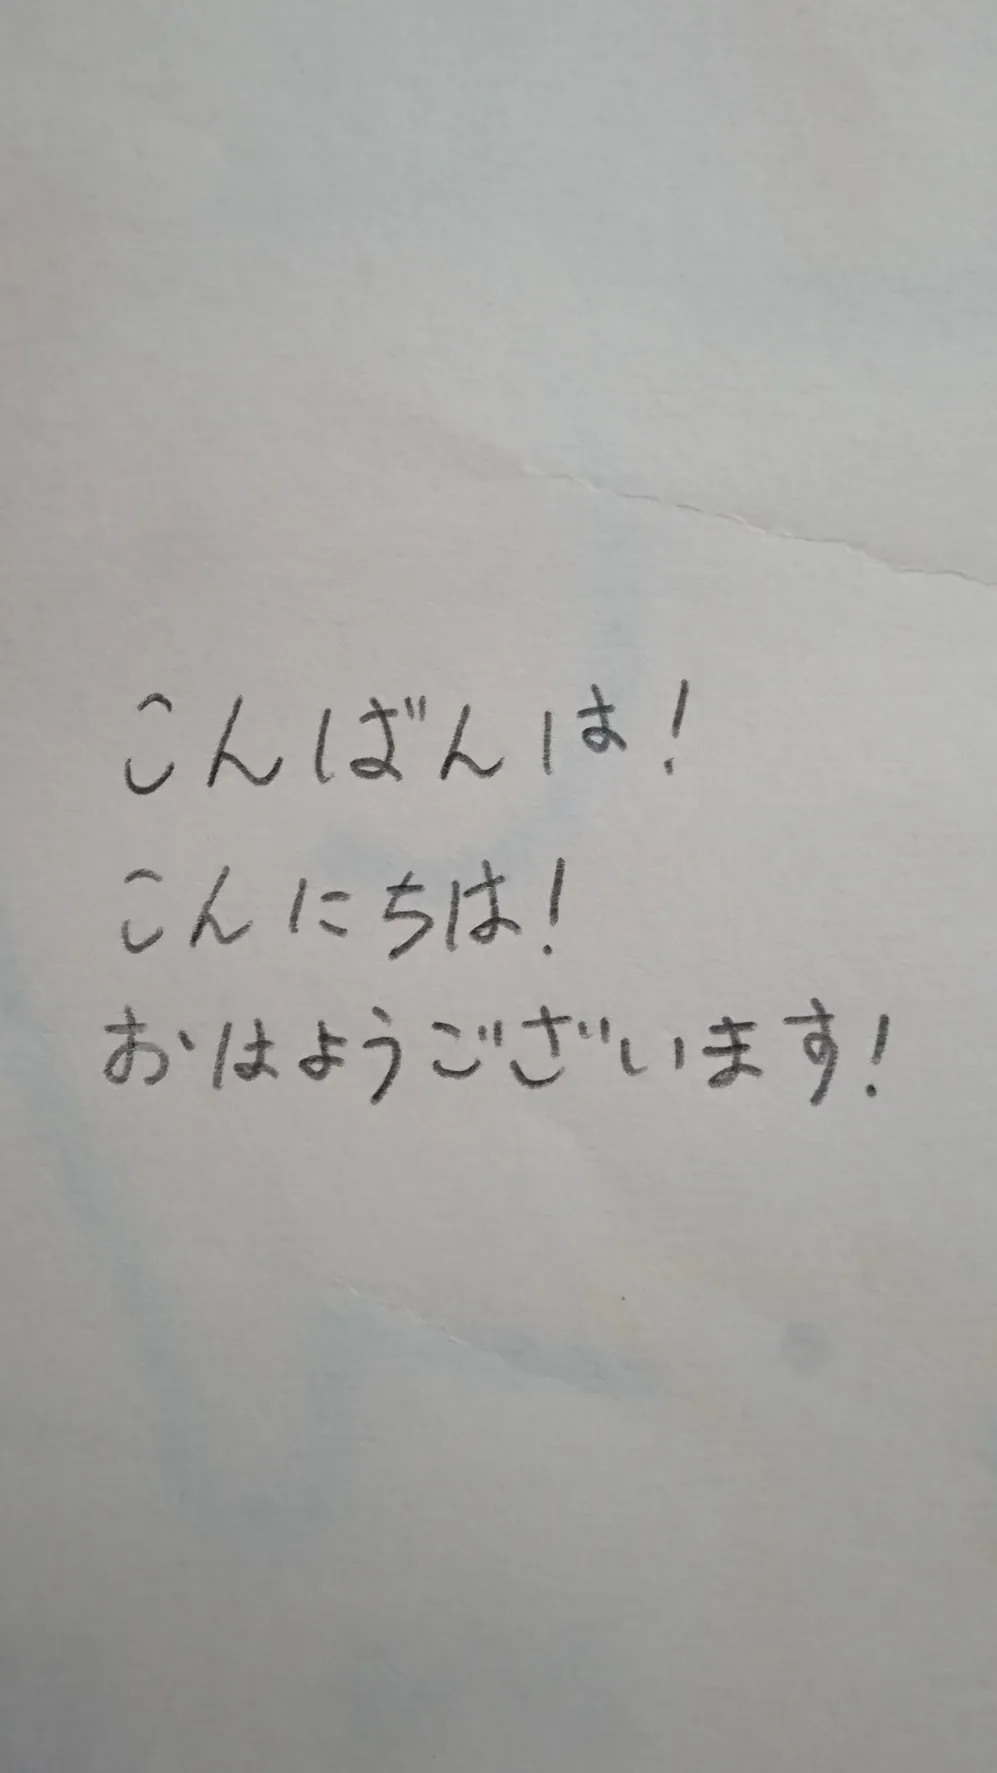 こんばんは!
こんにちは!
おはようございます!